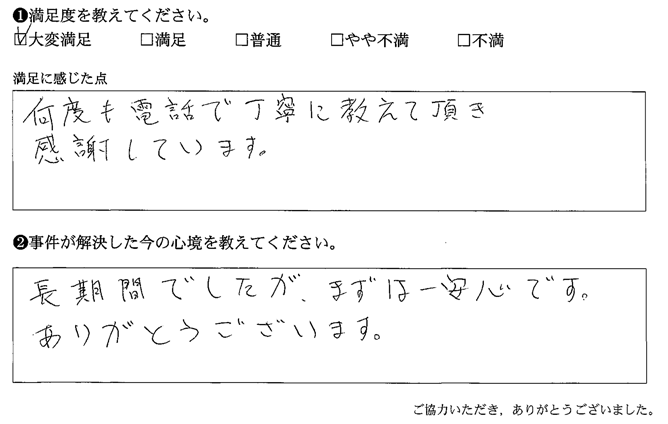 ❶満足度を教えてください。
☑大変満足 □満足 □普通 □やや不満 □不満
満足に感じた点
何度も電話で丁寧に教えて頂き
感謝しています。
❷事件が解決した今の心境を教えてください。
長期間でしたが、まずは一安心です。
ありがとうございます。
ご協力いただき，ありがとうございました。